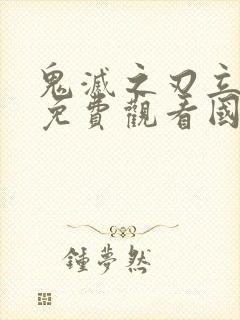 鬼滅之刃立
免費觀看國
鍾夢然